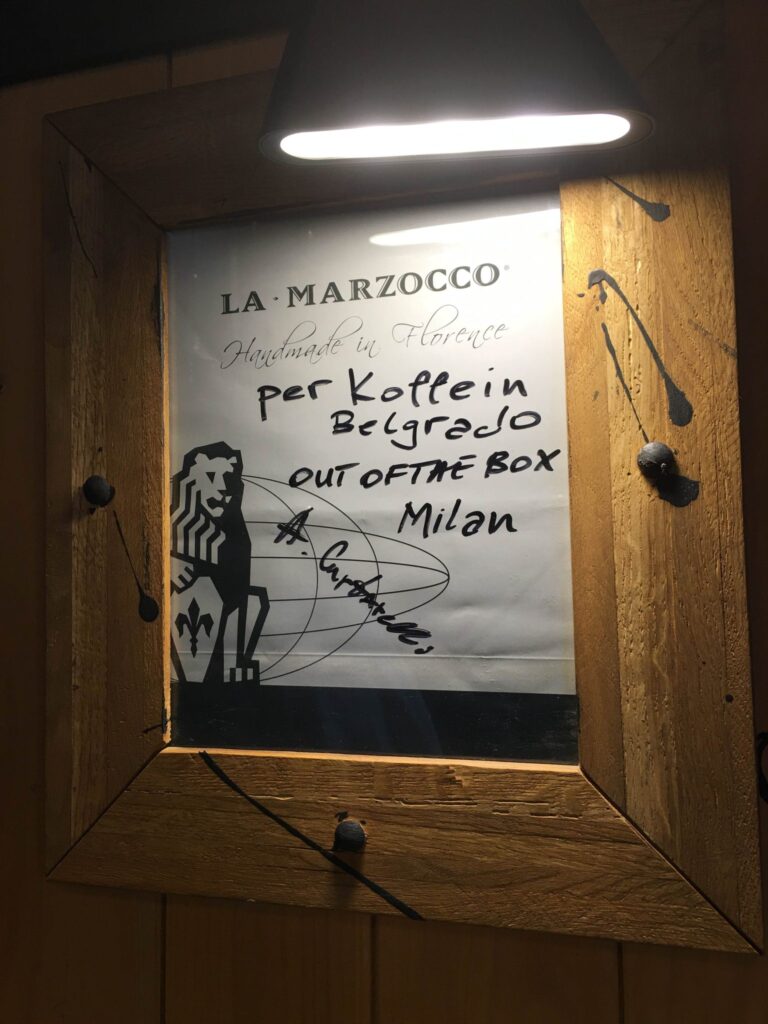 LA · MARZOCCO®
Handmade in Florence
per Koffein
Belgrado
OUT OF THE BOX
Milan
A.